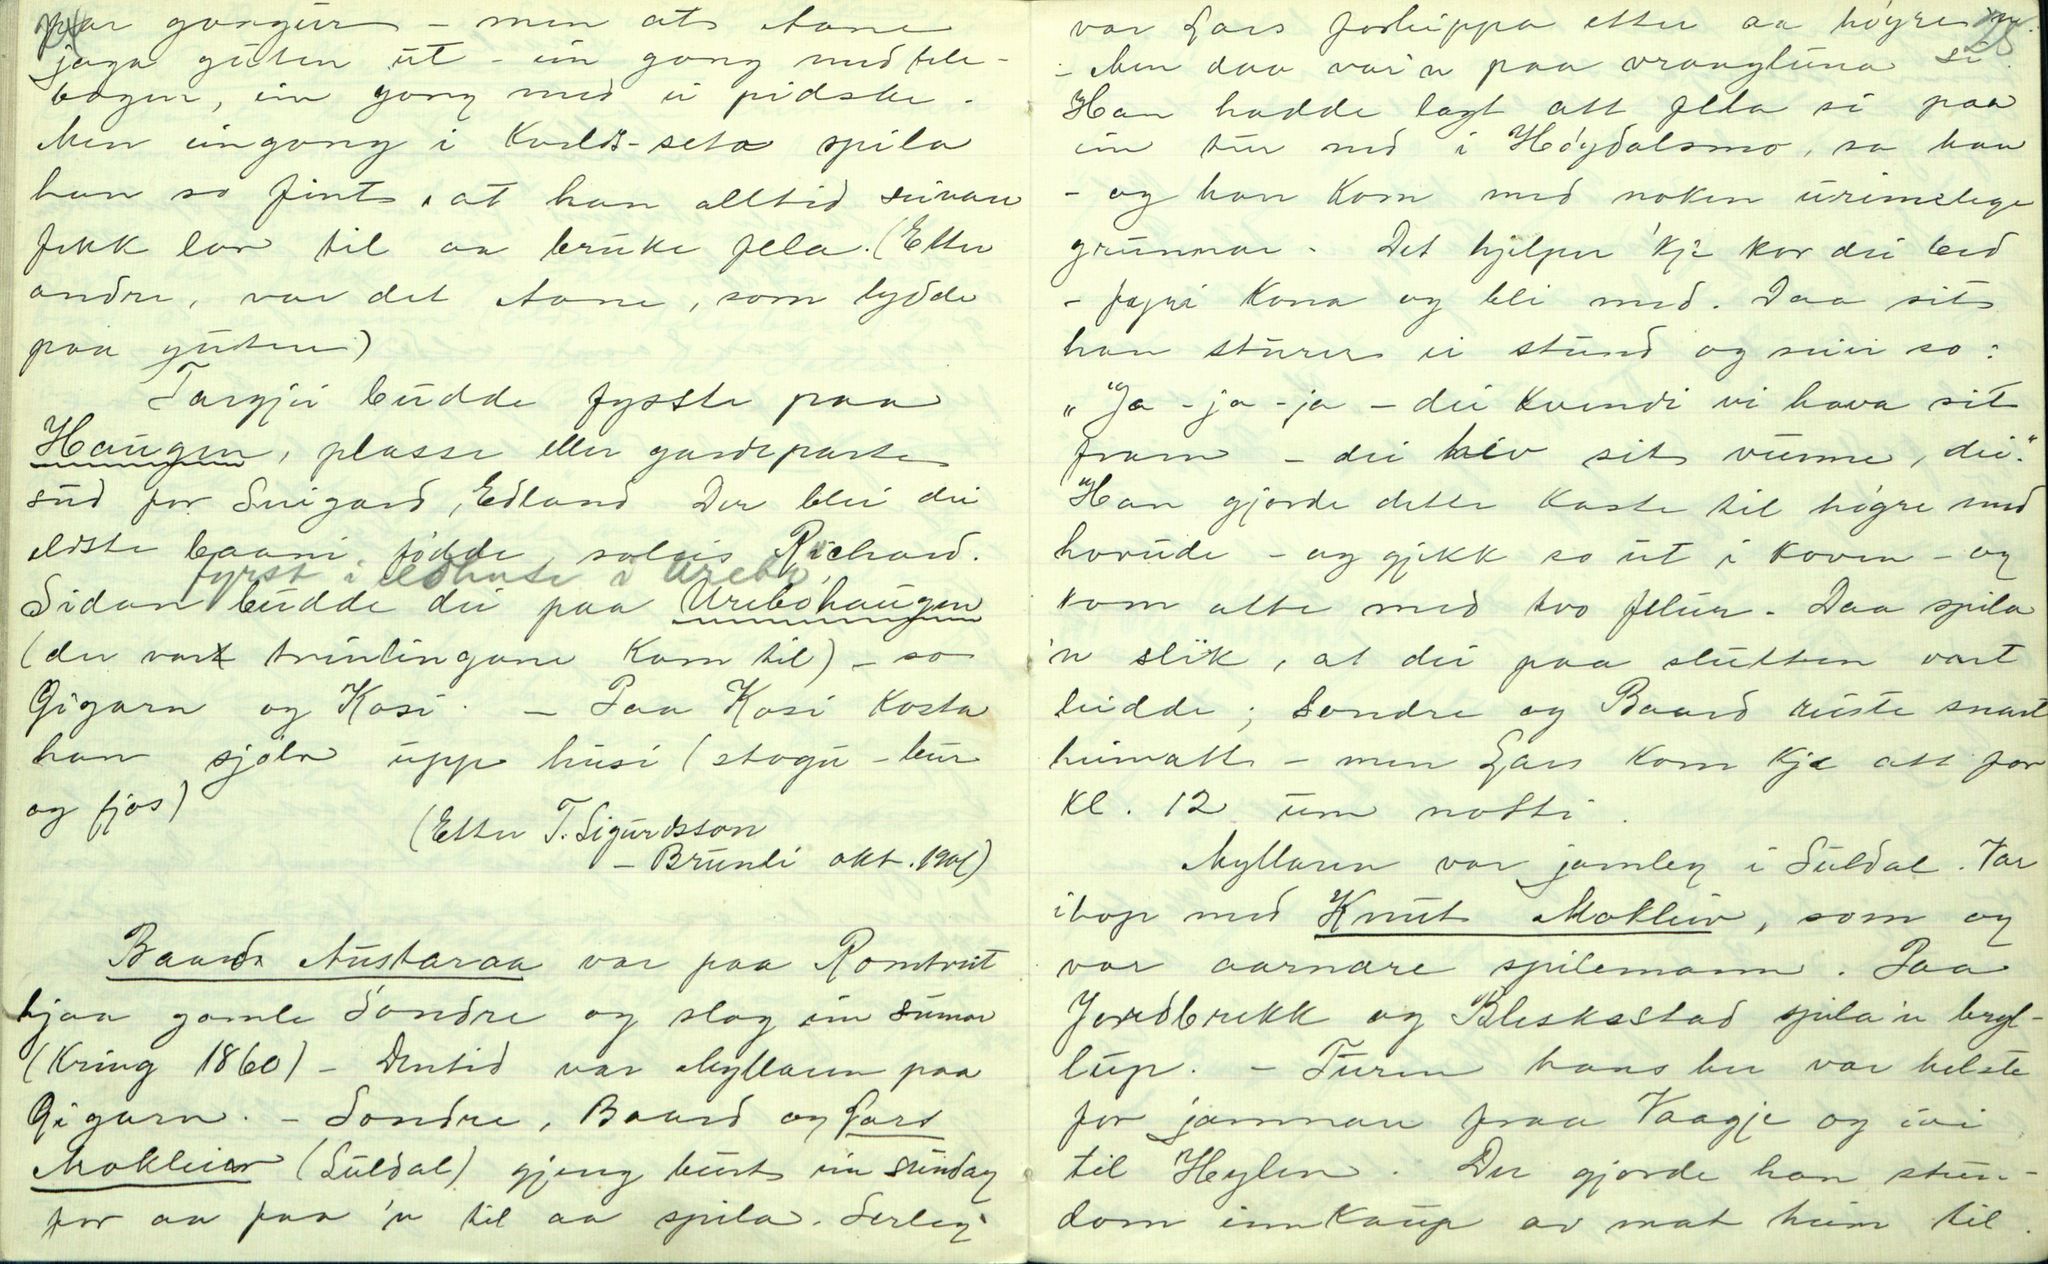 par gongur – men at Aane
jaga guten ut – ein gong med bile-
bogen, ein gong med ei pidske.
Men eingong i Kvelds-seta spila
han so fint, at han alltid seinare
fekk lov til aa bruke fela. (Etter
andre, var det Aane, som lydde
paa guten)
Targjei budde fysste paa
Haugen, plasse eller gardepart
sud for Suigard, Edland. Der blei dei
eldste baani fødde, soleis Richard.
fyrst i eldhuse i Urebø
Sidan budde dei paa Urebøhaugen
(der vart trinlingane Kom til) – so
Gigarn og Kosi. – Paa Kosi Kosta
han sjølv upp husi (stogu – bur
og fjos)
(Etter T. Sigurdsson
– Brunli okt. 1901)
Baard Austaraa var paa Romtveit
hjaa gamle Sondre og slog ein sumar
(Kring 1860) – Dentid var Myllaren paa
Gigarn. – Sondre, Baard og Lars
Mokleiv (Suldal) gjeng burt ein sundag
for aa faa 'n til aa spila. Serleg
28
var Lars forhippa etter aa høgre 'n.
– Men daa var'n paa vrangluna si.
Han hadde lagt att fela si paa
ein tur ned i Høydalsmo, sa han
– og han Kom med noken urimelege
grunnar. Det hjelper 'kje kor dei bed
– fegri Kona og bli med. Daa sit
han sturer ei stund og seier so:
"Ja – ja – ja – dei Kvendi vi hava sit
fram – dei hev sit vunne, dei."
Han gjorde dette Kaste til høgre med
hovude – og gjekk so ut i koven – og
kom atte med tvo felur. Daa spila
'n slik, at dei paa slutten vart
leidde; Sondre og Baard reiste snart
heimatt – men Lars Kom Kje att for
Kl. 12 um notti.
Myllaren var jamleg i Suldal. Var
ihop med Knut Mokleiv, som og
var aarnare spilemann. Paa
Jordbrekk og Bleskestad spila'n bryl-
lup. – Turen hans her var helste
for jamnan fraa Vaagje og ivi
til Heylen. Der gjorde han stun-
dom innkaup av mat heim til